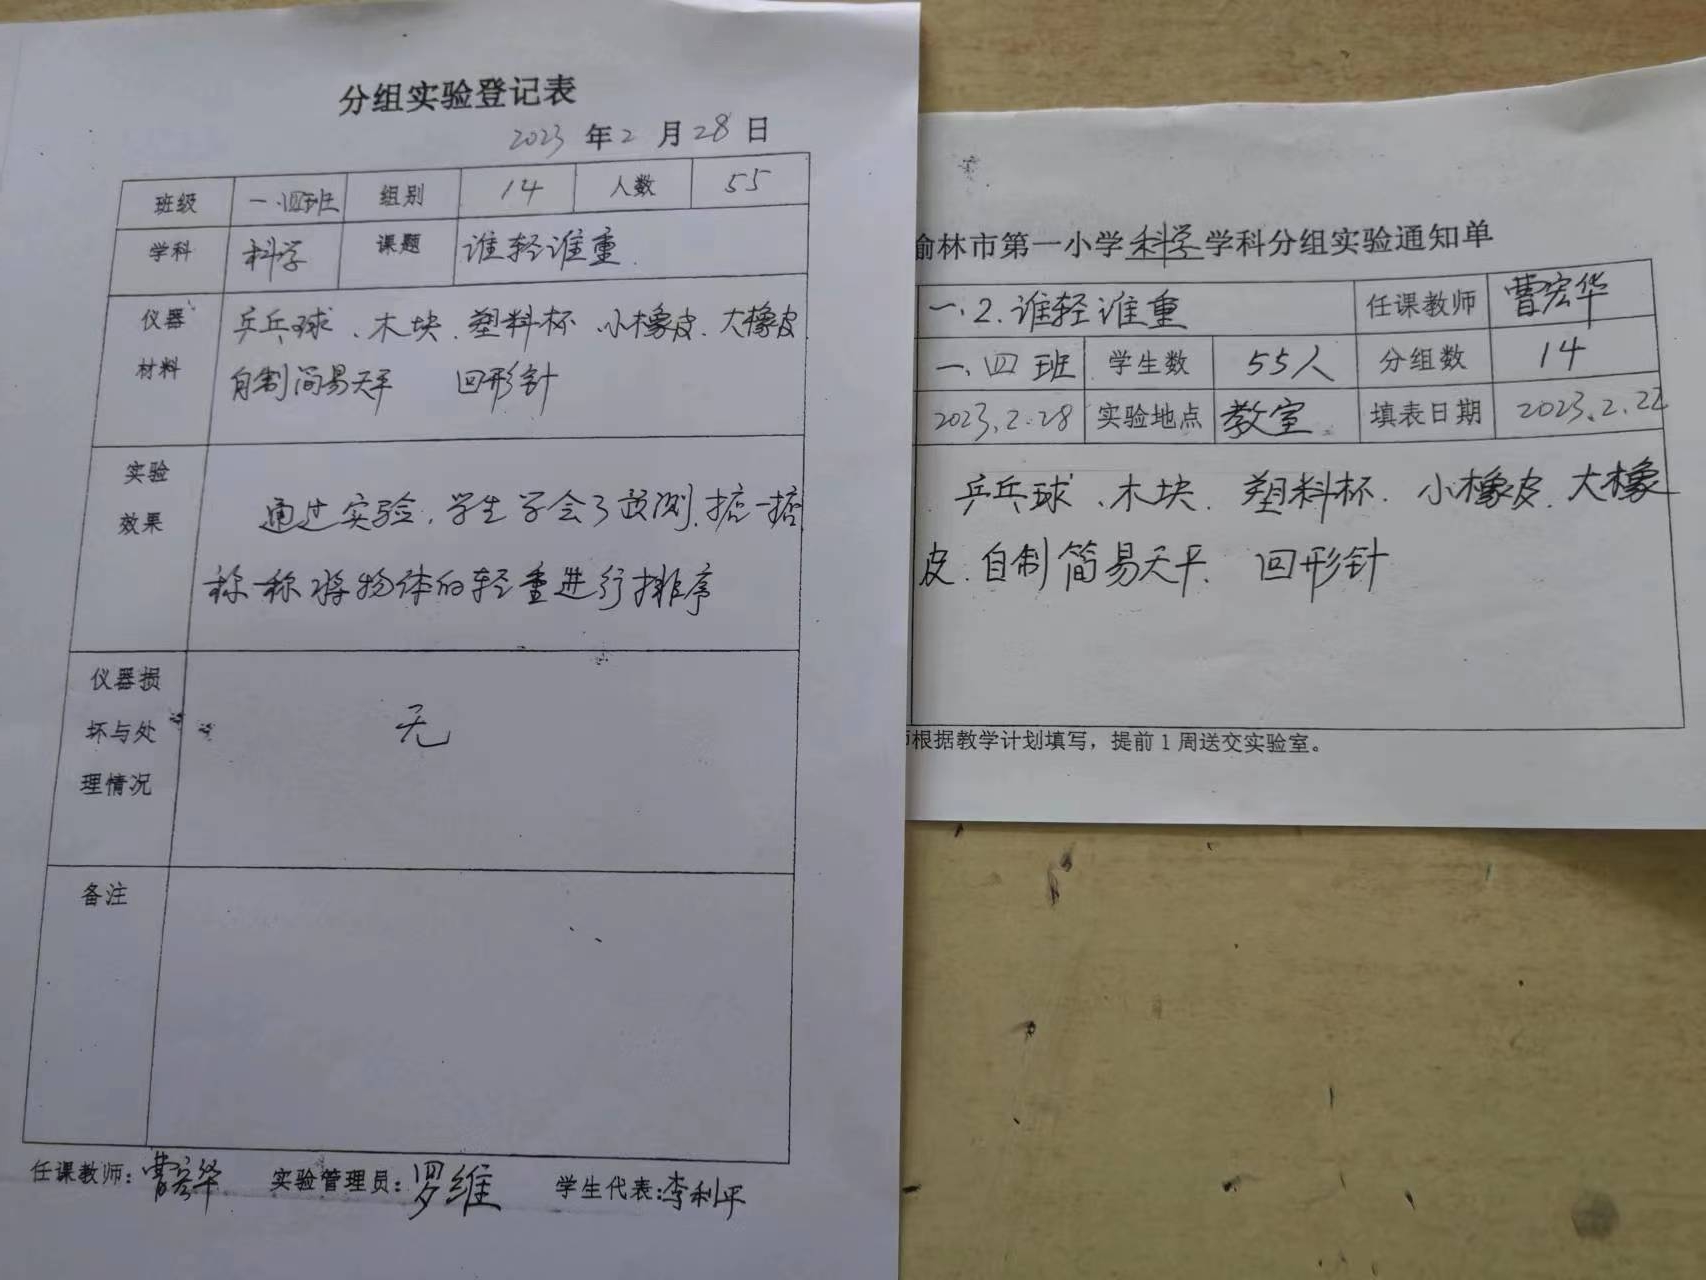 分组实验登记表
2023 年 2 月 28 日
班级 一.四班 组别 14 人数 55
学科 科学 课题 谁轻谁重
仪器 乒乓球、木块、塑料杯、小橡皮、大橡皮
材料 自制简易天平 回形针
实验
效果 通过实验，学生学会了预测、掂一掂
称一称将物体的轻重进行排序
仪器损
坏与处 无
理情况
备注
任课教师：曹宏华 实验管理员：罗维 学生代表：李利平
榆林市第一小学科学学科分组实验通知单
一.2.谁轻谁重 任课教师 曹宏华
一.四班 学生数 55人 分组数 14
2023.2.28 实验地点 教室 填表日期 2023.2.22
乒乓球、木块、塑料杯、小橡皮、大橡
皮、自制简易天平、回形针
根据教学计划填写，提前1周送交实验室。